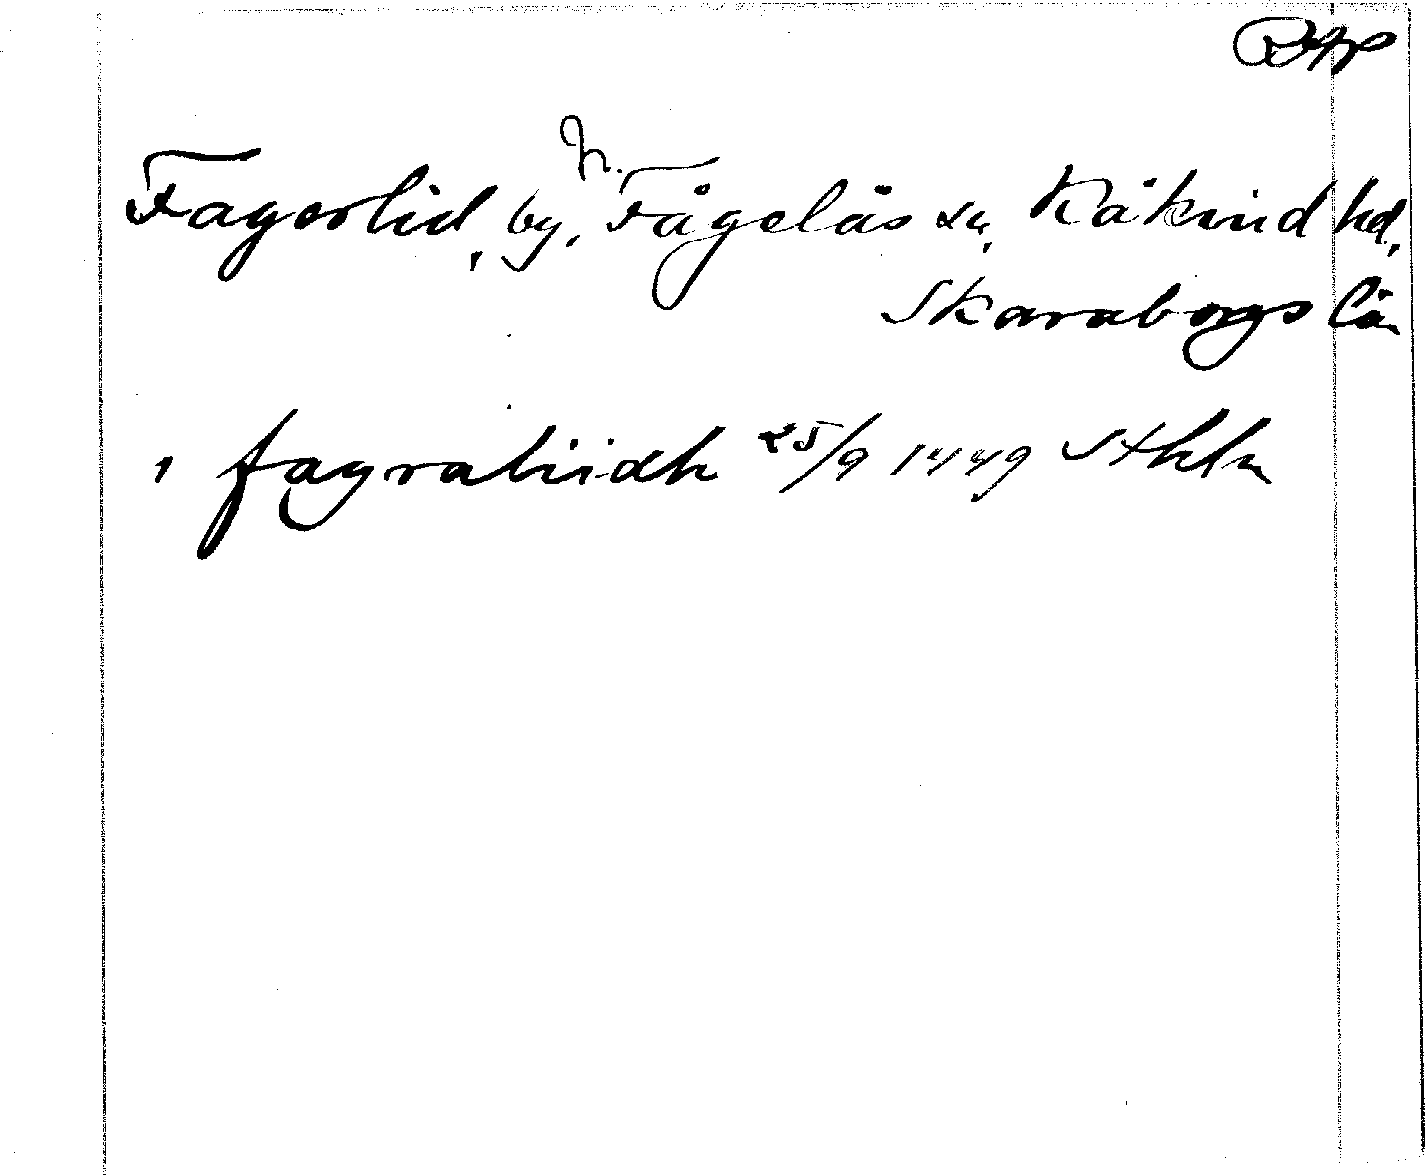 RAP
Fagerlid, by, N. Fågelås sn, Kåkind hd,
Skaraborgs län
, fagraliidh 25/9 1449 Sthlm